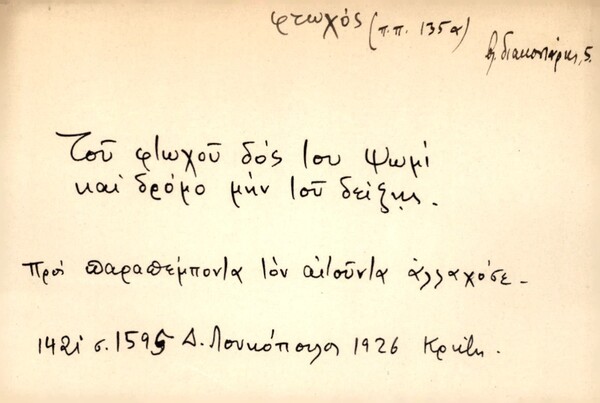 φτωχός (π.π. 135α)
βλ. διακονιάρης, 5.
Τοῦ φτωχοῦ δός του ψωμί
καί δρόμο μήν τοῦ δείξῃς.
Πρός παραπέμποντα τόν αἰτοῦντα ἀλλαχόσε.
1421 σ. 1595 Δ. Λουκόπουλος 1926 Κρήτη.